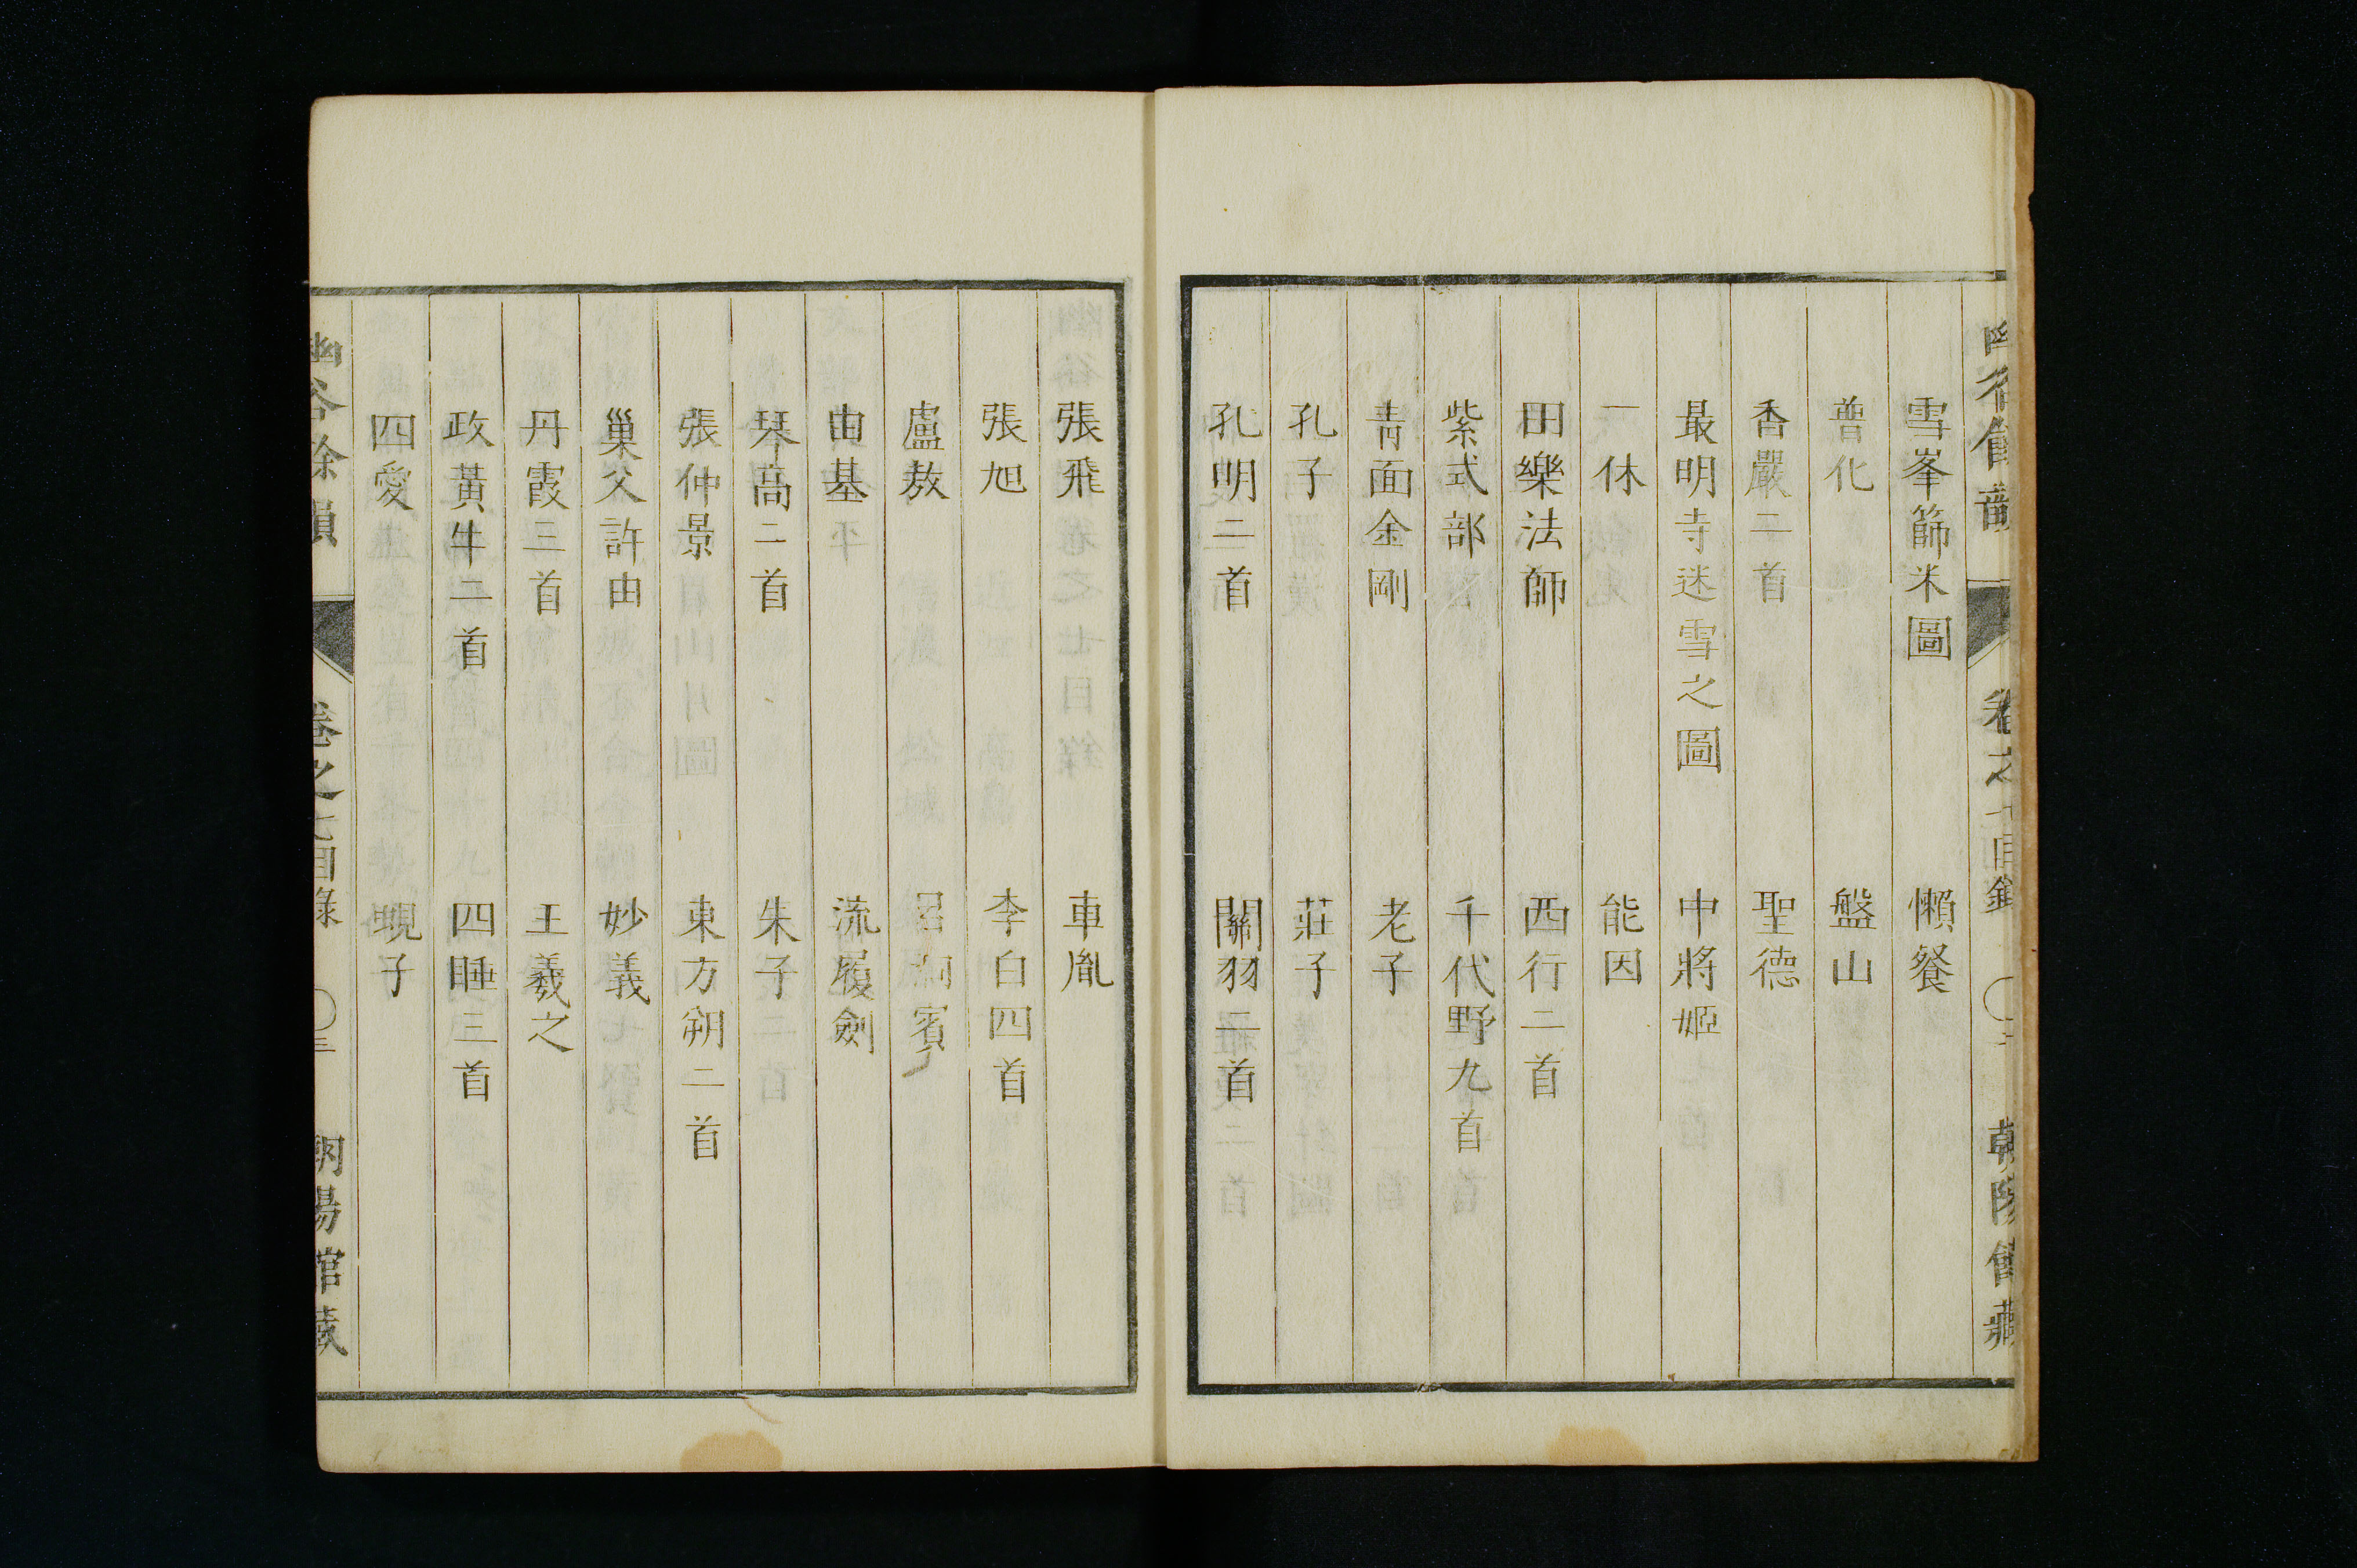 雪峯篩米圖　懶餐
普化　盤山
香嚴二首　聖德
最明寺迷雪之圖　中將姬
一休　能因
田樂法師　西行二首
紫式部　千代野九首
青面金剛　老子
孔子　莊子
孔明二首　關羽二首
張飛　車胤
張旭　李白四首
盧敖　呂洞賓
由基　流履劍
琴高二首　朱子
張仲景　東方朔二首
巢父許由　妙義
丹霞三首　王羲之
政黃牛二首　四睡三首
四愛　蜆子
幽谷餘韻　卷之七目錄　〇三　朝陽館藏